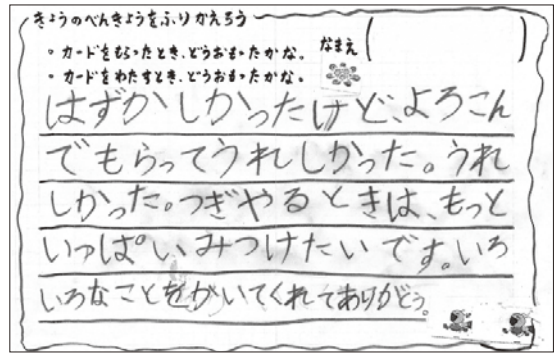 きょうのべんきょうをふりかえろう
・カードをもらったとき、どうおもったかな。
・カードをわたすとき、どうおもったかな。
なまえ( )
はずかしかったけど、よろこん
でもらってうれしかった。うれ
しかった。つぎやるときは、もっと
いっぱい、みつけたいです。いろ
いろなことをかいてくれてありがとう。